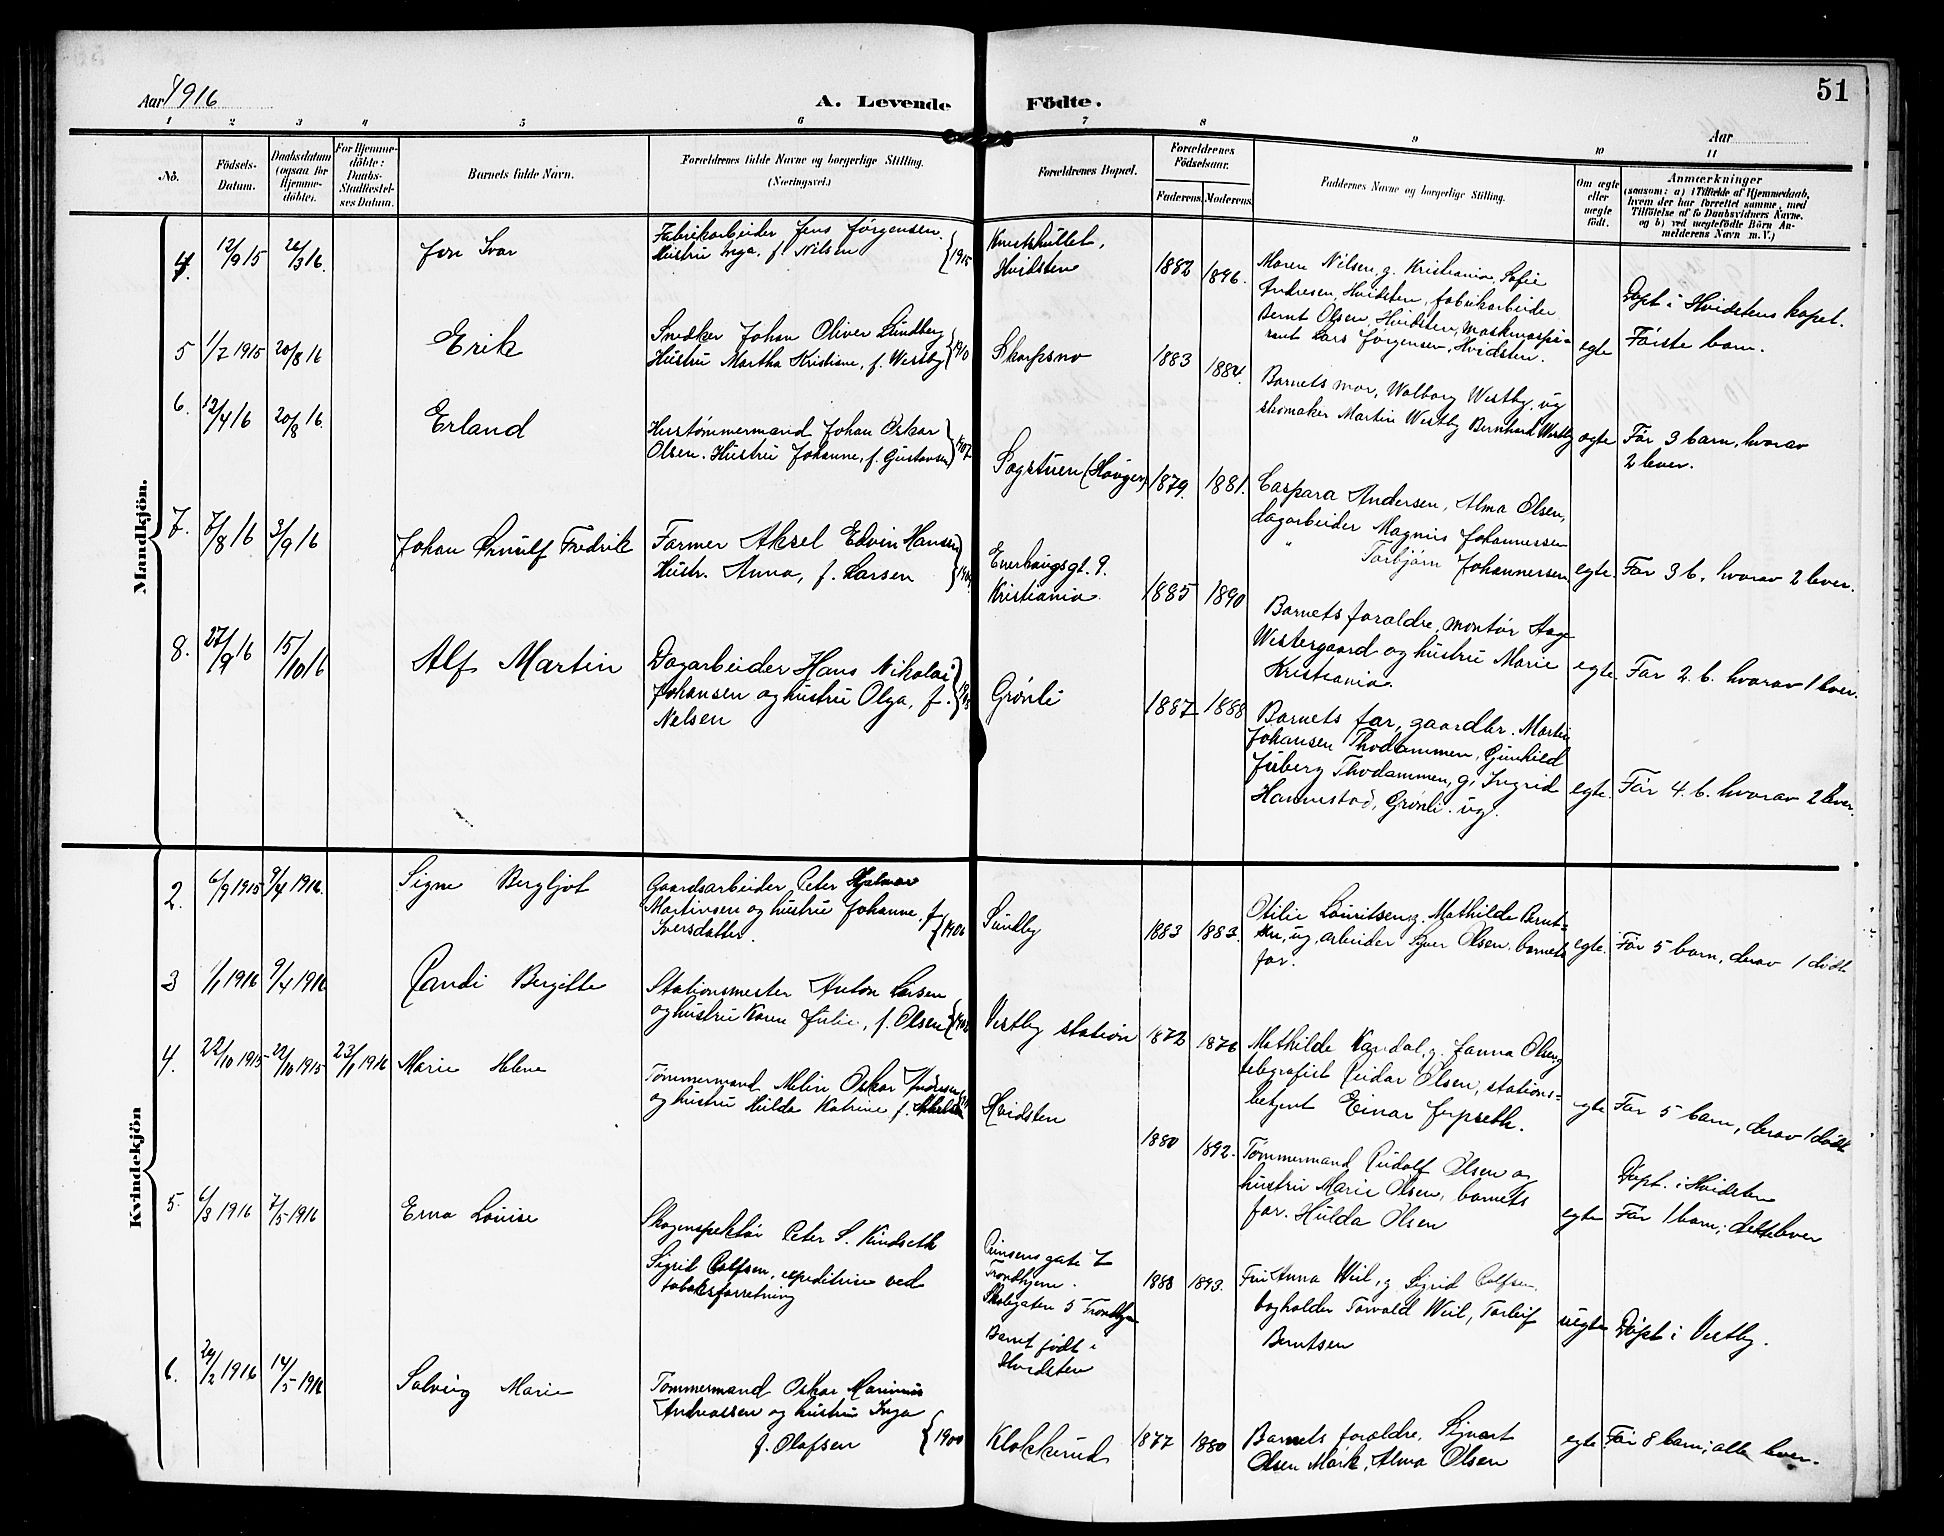 Aar 1916
A. Levende Födte.
51
Aar
1 2 3 4 5 6 7 8 9 10 11
Nö.
Födsels-
Datum.
Daabsdatum
(ogsaa for
Hjemme-
döbte).
For Hjemme-
döbte:
Daabs-
Stadfæstel-
ses Datum.
Barnets fulde Navn.
Forældrenes fulde Navne og borgerlige Stilling.
(Næringsvei.)
Forældrenes Bopæl.
Forældrenes
Födselsaar.
Faderens Moderens
Faddernes Navne og borgerlige Stilling.
Om ægte
eller
uægte
födt.
Anmærkninger
(saasom: a) i Tilfælde af Hjemmedaab,
hvem der har forrettet samme, med
Tilföielse af to Daabsvidners Navne,
og b) ved uægtefödte Börn An-
melderens Navn m.V.)
Mandkjön.
4. 12/9 15 26/3 16. Jon Ivar
Fabrikarbeider Jens Jørgensen
Hustru Inga, f. Nilsen
Hvidsten
1882 1896.
Maren Nilsen, g. Kristiania, Sofie
Andresen, Hvidsten, fabrikarbeider
Bernt Olsen, Hvidsten, maskinaspi-
rant Lars Jørgensen, Hvidsten.
egte
Døpt i Hvidstens kapel.
Første barn.
5 1/7 1915 20/8 16 Erik
Snedker Johan Oliver Lundberg
Hustru Martha Kristiane, f. Westby 1910
Skarpsno
1883 1884.
Barnets mor, Walborg Westby, ug
skomaker Martin Westby Bernhard Westby
egte
Før 3 barn, hvorav
2 lever.
6. 12/4 16 20/8 16. Erland
Hustømmermand Johan Oskar
Olsen. Hustru Johanne, f. Gustavsen 1907
Sagstuen (Haugen)
1879. 1881.
Caspara Andersen, Alma Olsen,
dagarbeider Magnus Johannessen
" Torbjørn Johannersen
egte.
Før 3 b. hvorav 2 lever.
7. 7/8 16 3/9 16 Johan Arnulf Fredrik
Farmer Aksel Edvin Hansen
Hustr. Anna, f. Larsen
Enerhaugsgt. 9.
Kristiania.
1885 1890
Barnets foraldre, montør Aage
Westergaard og hustru Marie
Kristiania.
egte
Før 2. b. hvorav 1 lever.
8. 27/9 16 15/10 16 Alf Martin
Dagarbeider Hans Nikolai
Johansen og hustru Olga, f.
Nelsen
Grønli
1887 1888
Barnets far, gaardbr. Martin
Johansen Thodammen, Gunhild
Juberg Thodammen, g, Ingrid
Hannestad, Grønli. ug.
egte.
Før 4. b. hvorav 2 lever.
Kvindekjön
2. 6/9 1915 9/4 1916. Signe Bergljot
Gaardsarbeider Peter Hjalmar
Martinsen og hustru Johanne, f.
Iversdatter. 1906
Sundby
1883 1883.
Otilie Lauritsen, g. Mathilde Bernt-
sen, ug, arbeider Syver Olsen, barnets
far.
egte.
Før 5 barn, derav 1 dødt
3 1/1 1916 9/4 1916 Randi Bergitte
Stationsmester Anton Larsen
og hustru Karen Julie, f. Olsen
Vestby station
1872 1876
Mathilde Vandal, g. Janna Olsen, g
telegrafist Reidar Olsen, stations-
betjent Einar
egte
Før 5 barn, derav 1 dødt
4. 22/10 1915 22/10 1915 23/1 1916 Marie Helene
Tømmermand Melin Oskar Andresen
og hustru Hulda Katrine f.
Hvidsten
1880 1892.
Tømmermand Rudolf Olsen og
hustru Marie Olsen, barnets
far. Hulda Olsen
egte
Døpt. i Hvidsten
Før 1 barn; dette lever
5. 6/3 1916 7/5 1916 Erna Louise
Skoginspektør Peter S. Kindseth
Sigrid Rolfsen, expeditrise ved
tobaksforretning
Prinsens gate 7
Trondhjem.
Skolegaten 5 Trondhjem
Barnet født i
Hvidsten
1888 1893.
Fru Anna Weil, g Sigrid Rolfsen
bogholder Torvald Weil, Torleif
Berntsen
uegte
Døpt i Vestby.
6. 29/2 1916 14/5 1916 Solveig Marie
Tømmermand Oskar Marinius
Andreassen og hustru Inga
f. Olafsen 1900
Klokkerud
1877 1880
Barnets foraldre. Sigvart
Olsen Mørk, Alma Olsen
egte
Før 8 barn; alle lever.